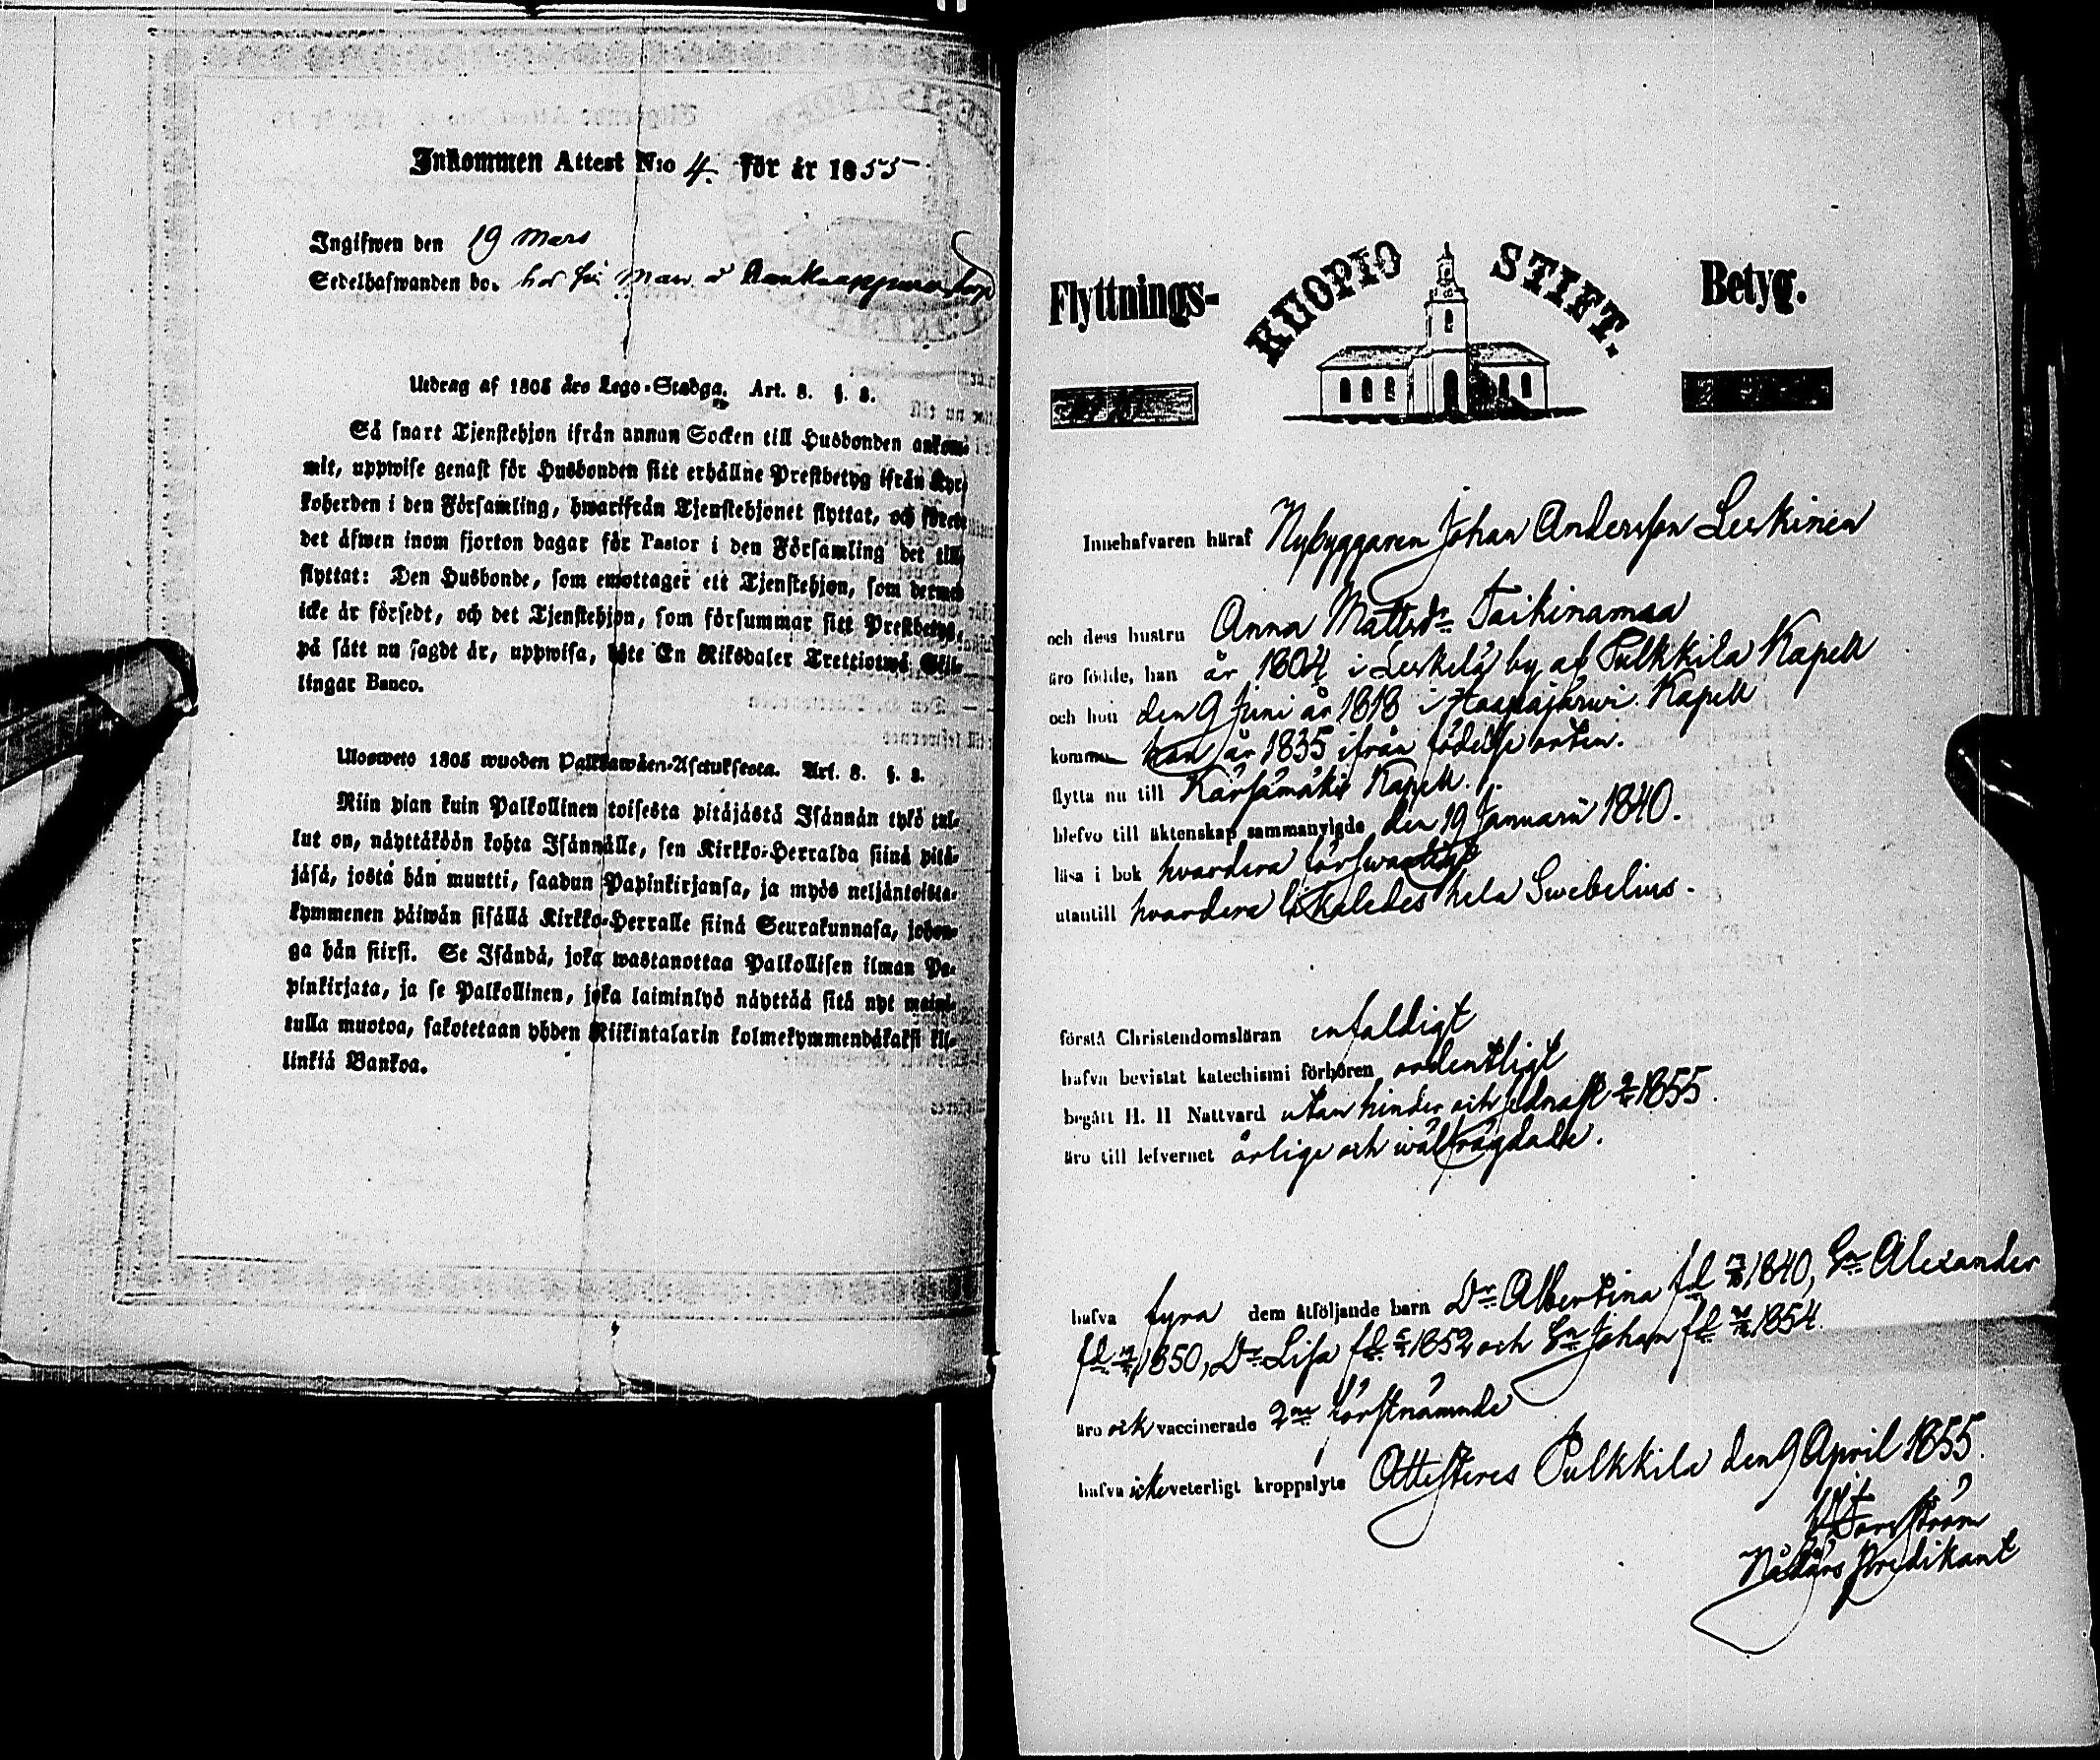 Inkommen Attest N:o 4. för år 1855
Ingifwen den 19 Mars
Sedelhafwanden bo. hos sin man å
Utdrag af 1805 års Lego-Stadga. Art. 8. §. 8.
Så snart Tjenstehjon ifrån annan Socken till Husbonden ankom-
mit, uppwise genast för Husbonden sitt erhållne Prestbetyg ifrån Kyr-
koherden i den Församling, hwarifrån Tjenstehjonet flyttat, och förete
det äfwen inom fjorton dagar för Pastor i den Församling det till-
flyttat: Den Husbonde, som emottager ett Tjenstehjon, som dermed
icke är försedt, och det Tjenstehjon, som försummar sitt Prestbetyg,
på sätt nu sagdt är, uppwisa, böte En Riksdaler Trettiotwå Skil-
lingar Banco.
Ulosweto 1805 wuoden Palkkawäen-Asetuksesta. Art. 8. §. 8.
Niin pian kuin Palkollinen toisesta pitäjästä Isännän tykö tul-
lut on, näyttäköön kohta Isännälle, sen Kirkko-Herralda siinä pitä-
jäsä, josta hän muutti, saadun Papinkirjansa, ja myös neljäntoista-
kymmenen päiwän sisällä Kirkko-Herralle siinä Seurakunnasa, johon-
ga hän siirsi. Se Isändä, joka wastanottaa Palkollisen ilman Pa-
pinkirjata, ja se Palkollinen, joka laiminlyö näyttää sitä nyt maini-
tulla muotoa, sakotetaan yhden Riikintalarin kolmekymmendäkaksi kil-
linkiä Bankoa.
Flyttnings- KUOPIO STIFT. Betyg.
Innehafvaren häraf Nybyggaren Johan Andersson Leskinen
och dess hustru Anna Mattsdr Taikinamaa
äro födde, han år 1804 i Leskelä by af Pulkkila Kapell
och hon den 9 Juni år 1818 i Haapajärwi Kapell
komme han år 1835 ifrån födelse orten.
flytta nu till Kärsämäki Kapell.
blefvo till äktenskap sammanvigde den 19 Januarii 1840.
läsa i bok hvardera förswarligt
utantill hvardera likaledes hela Swebelius.
förstå Christendomsläran enfaldigt
hafva bevistat katechismi förhören ordentligt
begått H. H Nattvard utan hinder och sednast 1855.
äro till lefvernet ärlige och wälfrägdade.
hafva fyra dem åtföljande barn Dr Albertina fd 1840, Sn Alexander
fd 1850, Dr Lisa fd 1852 och Sn Johan fd 1854.
äro och vaccinerade 2ne förstnämnde
hafva icke veterligt kroppslyte Attesteres Pulkkila den 9 April 1855.
Nådårs Predikant